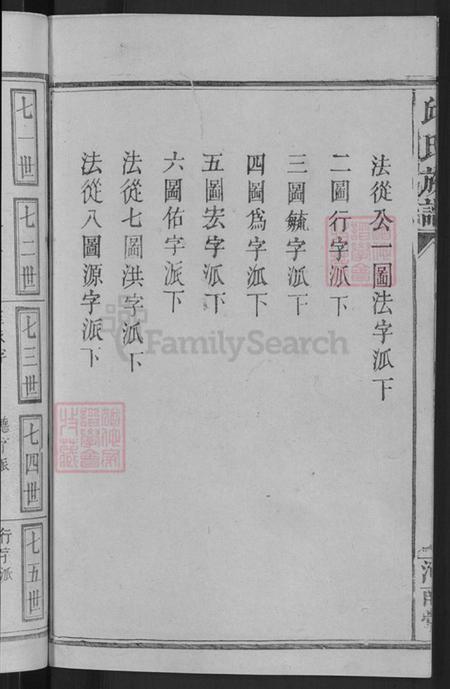 邱氏族譜
法從公一圖法字派下
二圖行字派下
三圖毓字派下
四圖為字派下
五圖宏字派下
六圖佑字派下
法從七圖洪字派下
法從八圖源字派下
七一世
七二世
七三世
七四世
七五世
德字派
行字派
河南堂
FamilySearch